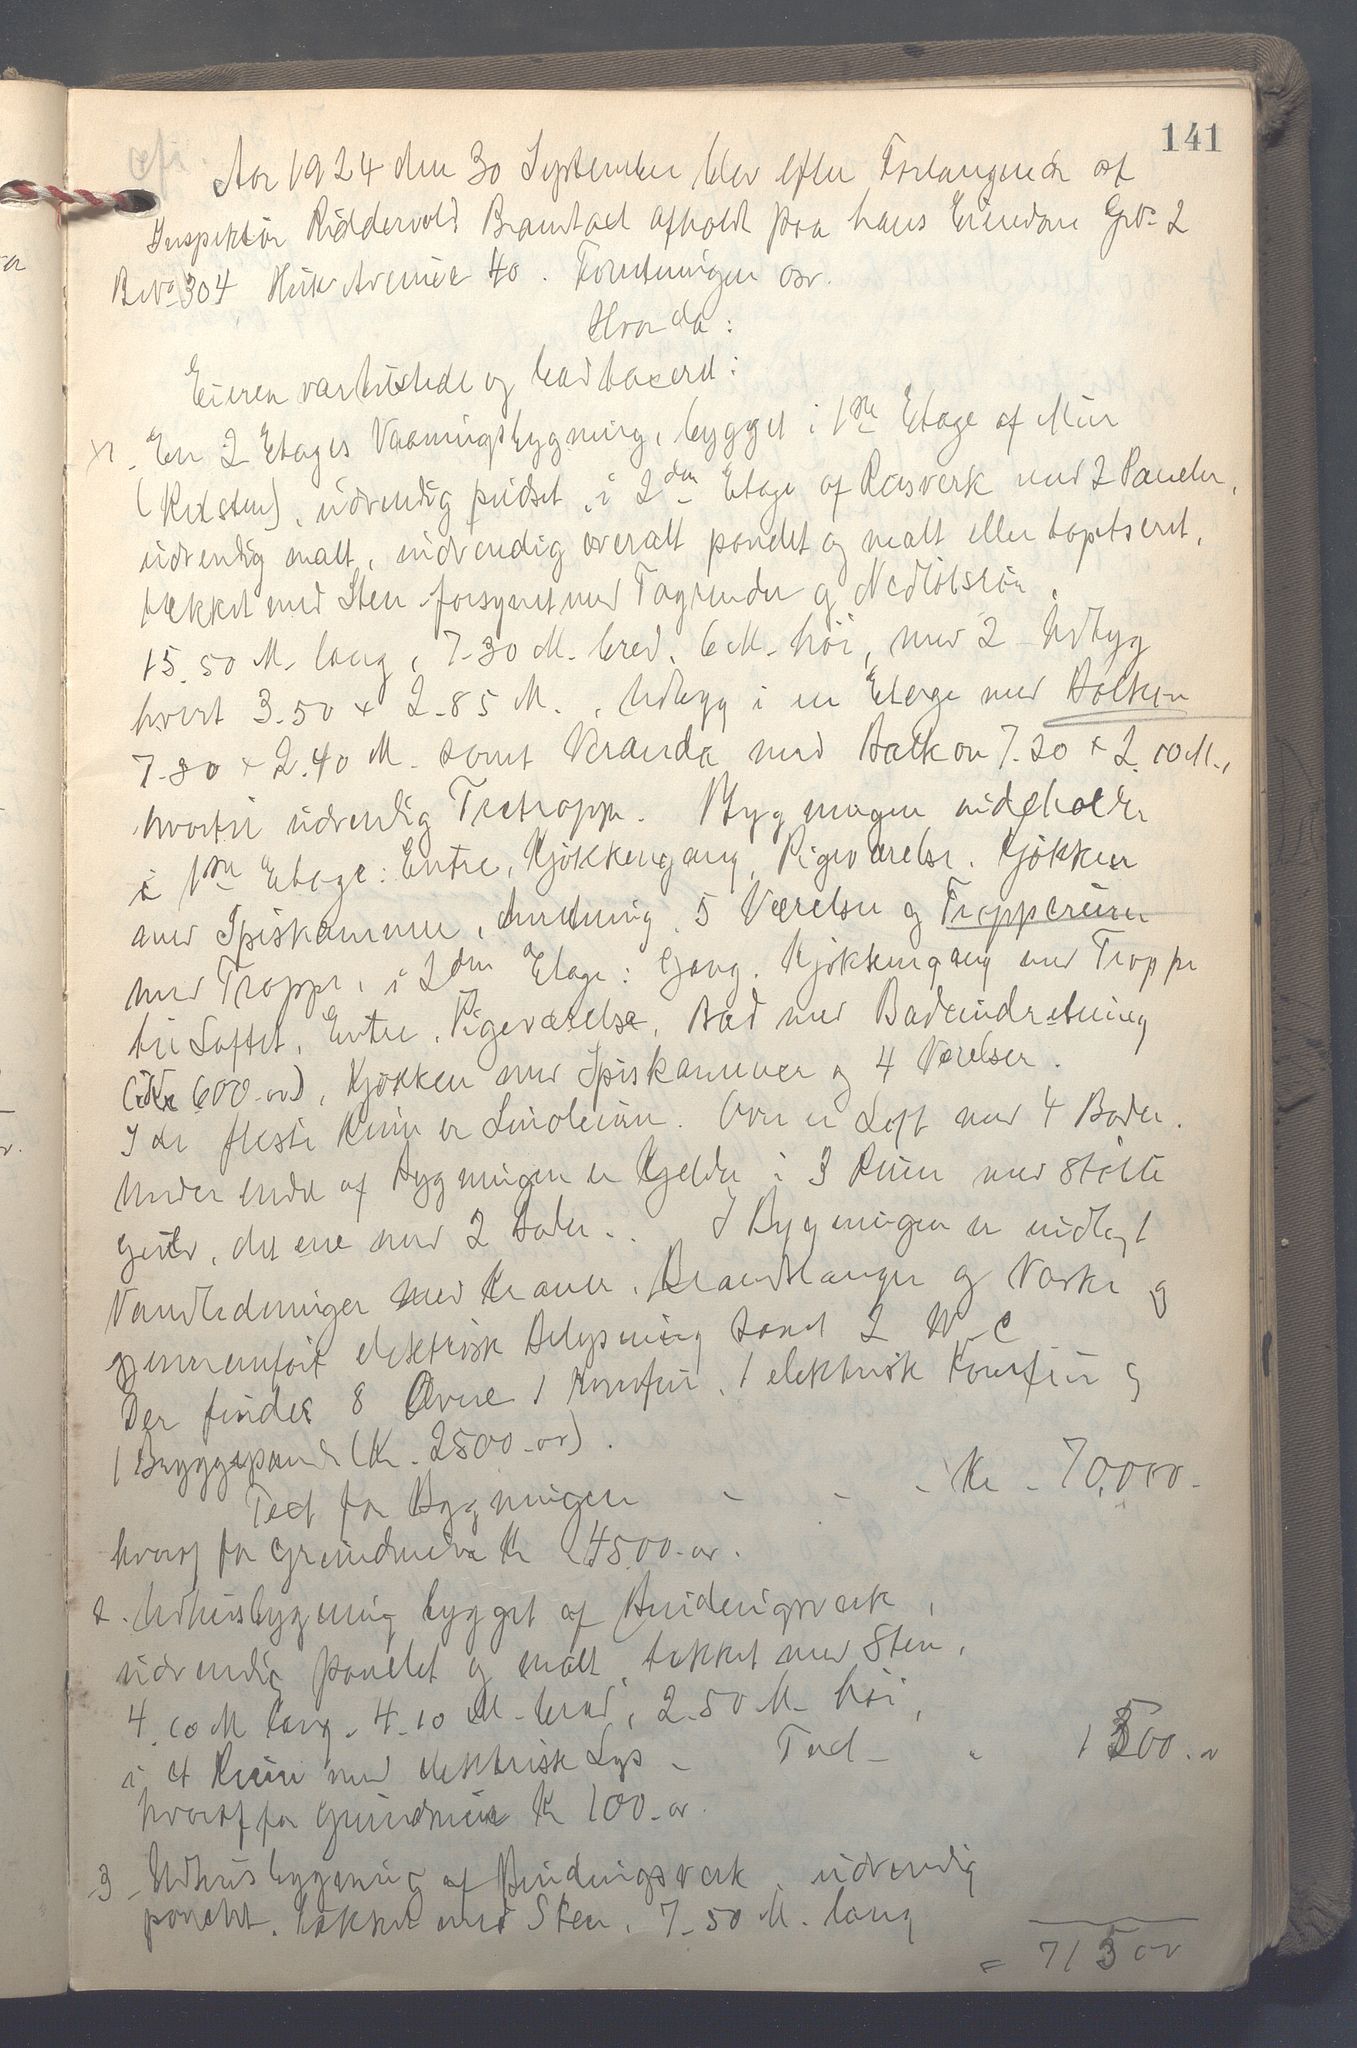 141
afs.
Aar 1924 den 30 September blev efter Forlangende af
Inspektör Riddervold Brandtaxt afholdt paa hans Eiendom Gr№ 2
B№ 304 Huk Avenue 40. Forretningen osv.
Hvorda:
Eieren var tilstede og blev taxeret:
1. En 2 Etages Vaaningsbygning, bygget i 1ste Etage af Mur
(Rødsten), udvendig pudset, i 2den Etage af Reisverk med 2 Paneler,
udvendig malt, indvendig overalt panelet og malt eller tapetseret,
tækket med Sten forsynet med Tagrender og Nedløbsrör,
15.50 M. lang, 7.30 M. bred, 6 M. høi, med 2 Udbyg
hvert 3.50 x 2.85 M., Udbygg i en Etage med Balkon
7.80 x 2.40 M. samt Veranda med Balkon 7.30 x 2.10 M.,
hvortil udvendig Trætrappe. Bygningen indeholder
i 1ste Etage: Entre, Kjøkkengang, Pigeværelse, Kjøkken
med Spiskammer, Anretning, 5 Værelser og Trapperum
med Trappe, i 2den Etage: Gang, Kjøkkengang med Trappe
til Loftet, Entre, Pigeværelse, Bad med Badeindretning
(Kr 600.00), Kjøkken med Spiskammer og 4 Værelser.
I de fleste Rum er Linoleum. Over er Loft med 4 Boder.
Under endel af Bygningen er Kjelder i 3 Rum med støbte
Gulv, det ene med 2 Boder. I Bygningen er indlagt
Vandledninger med Kraner, Brandslanger og Vaske og
gjennemført elektrisk Belysning samt 2 W.C
Der findes 8 Ovne 1 Komfur, 1 elektrisk Komfur og
1 Bryggepande (Kr. 2500.00).
Taxt for Bygningen - - - Kr. 70,000.-
hvoraf for Grundmure Kr 4500.00.
2. Udhusbygning bygget af Bindingsverk,
udvendig panelet og malt, tækket med Sten,
4.10 M lang, 4.10 M. bred, 2.50 M. høi,
i 4 Rum med elektrisk Lys - Taxt - " 1500.00
hvoraf for Grundmur Kr 100.00.
3. Udhusbygning af Bindingsverk, udvendig
panelet, tækket med Sten, 7.50 M. lang
= 71500